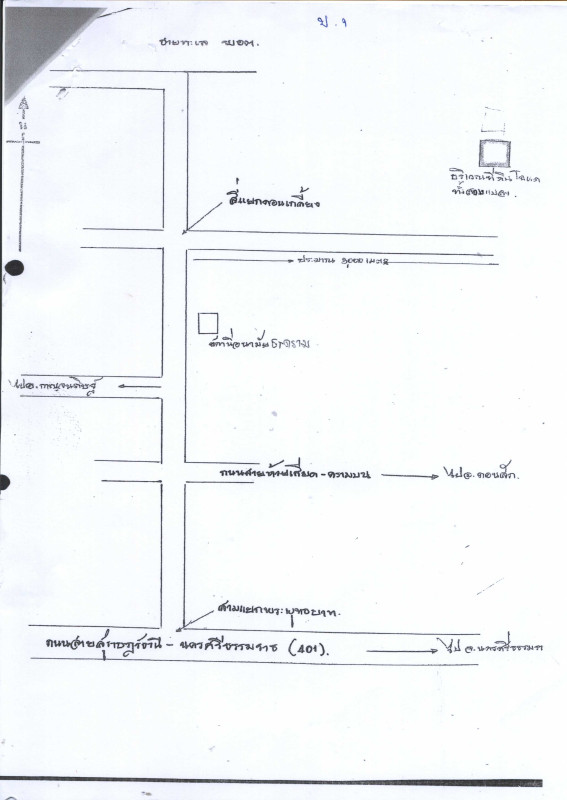 ป.1
ชายทะเล พอด.
น.
บริเวณที่ดินโฉนด
ทั้งสองแปลง.
สี่แยกดอนเกลี้ยง
ประมาณ 3000 เมตร
สถานีอนามัยธาราม
ไปอ.กาญจนดิษฐ์
ถนนสายบ้านเกียด-ครามบน
ไปอ.ดอนสัก.
สามแยกพระพุทธบาท.
ถนนสายสุราษฎร์ธานี - นครศรีธรรมราช (401).
ไป จ.นครศรีธรรมรา